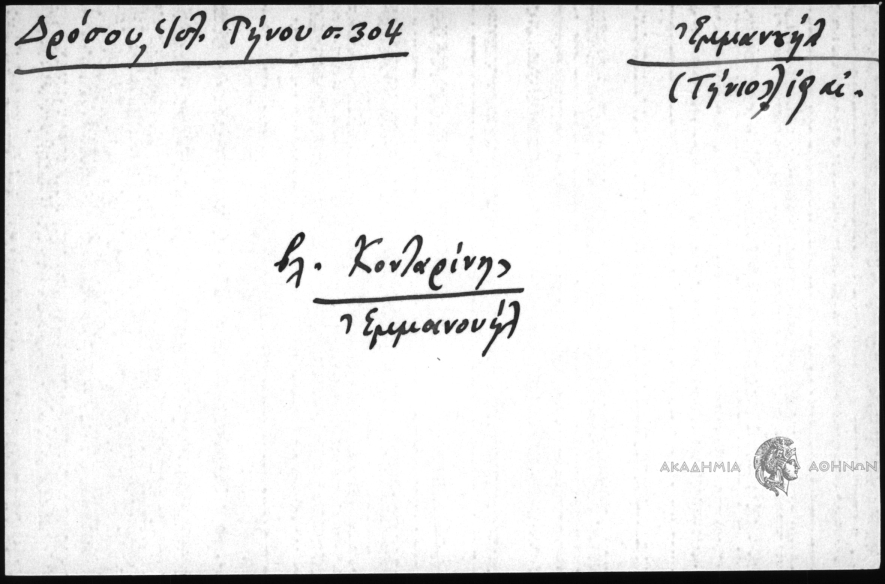 Δρόσου, Ἱσλ. Τήνου σ. 304
Ἐμμανȣήλ
(Τήνιος) ιϛ αἰ.
βλ. Κονταρίνης
Ἐμμανουήλ
ΑΚΑΔΗΜΙΑ ΑΘΗΝΩΝ